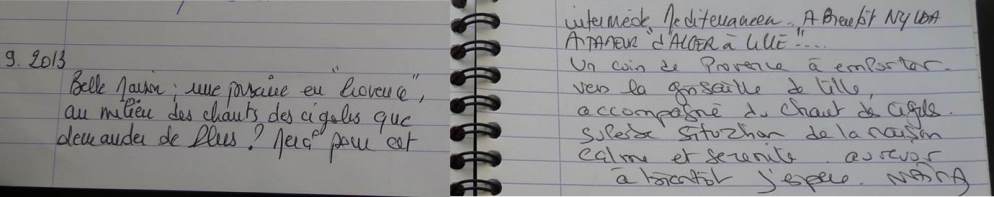 9. 2013
Belle maison ; une piscine en "Provence",
au milieu des chants des cigales que
demander de Plus ? Merci pour cet
intermède Méditerranéen. A Bientôt NYLDA
ATAMEUR "d'ALGER à LILLE"....
Un coin de Provence à emporter.
vers la grisaille de Lille,
accompagné du chant de cigale.
Situation de la maison
calme et serenite. au revoir
à bientôt j'espere.